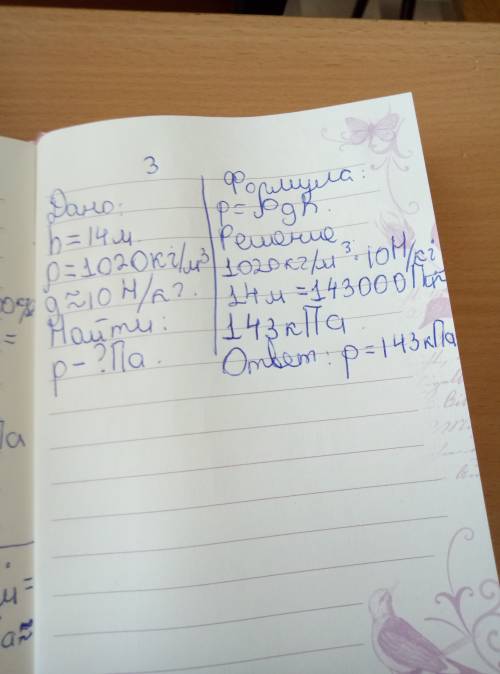 3
Дано:
h=14м.
ρ=1020кг/м³
g≈10 Н/кг.
Найти:
p-?Па.
Формула:
p=ρgh.
Решение
1020кг/м³·10Н/кг
14м=143000Па≈
143кПа
Ответ: p=143кПа
00%
=
Па
м=
а≈